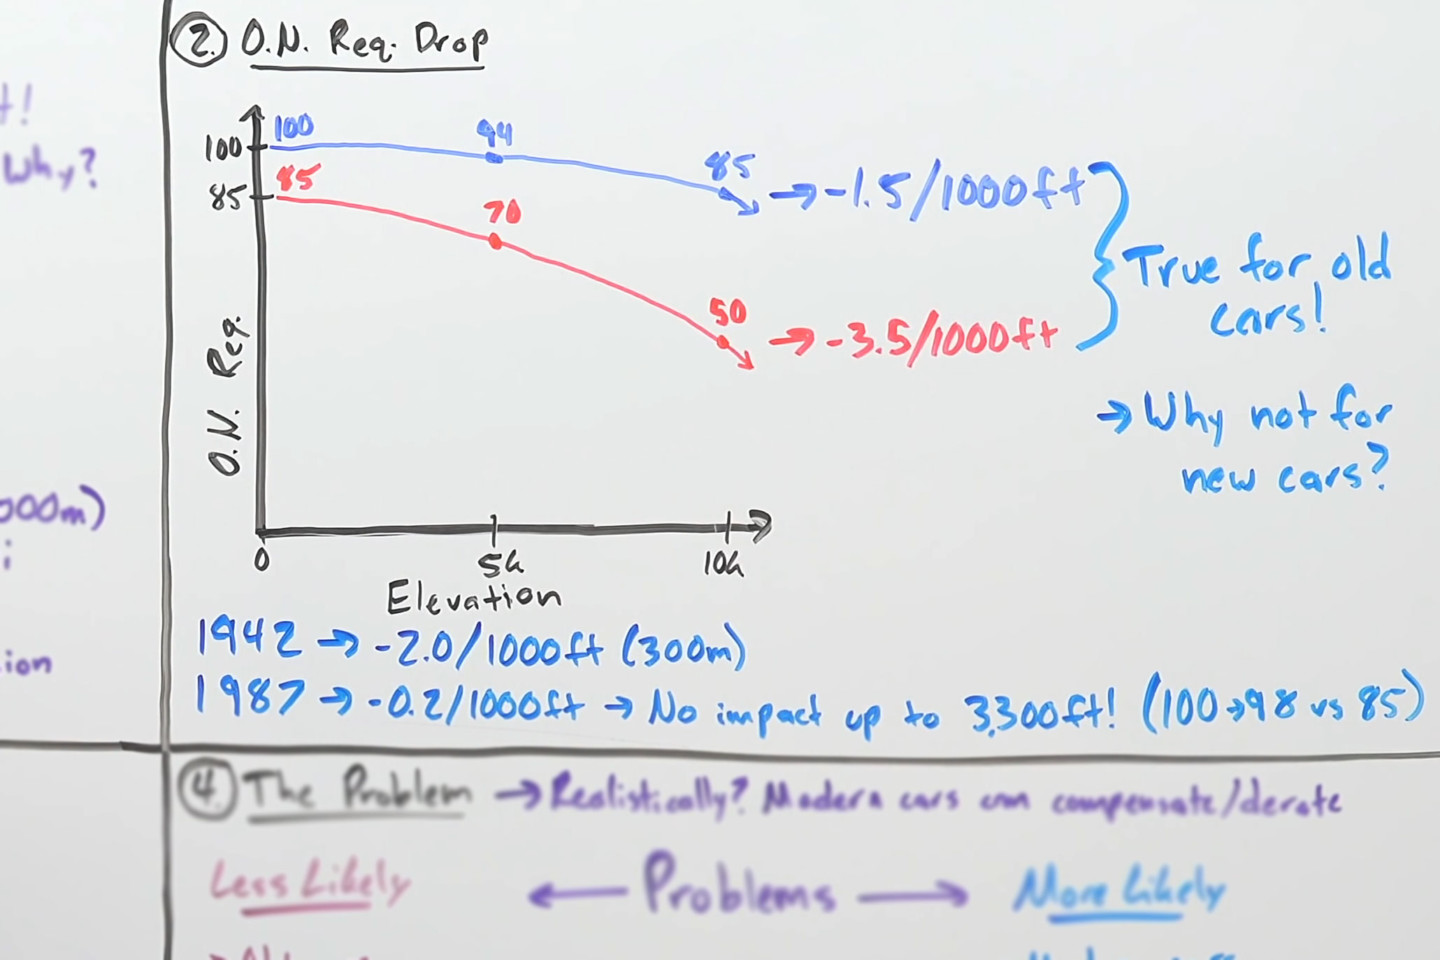 t!
Why?
000m)
i
ion
② O.N. Req. Drop
100
85
100
94
85
→ -1.5/1000ft
85
70
50
→ -3.5/1000ft
True for old
cars!
→ Why not for
new cars?
O.N. Req.
0
5k
10k
Elevation
1942 → -2.0/1000ft (300m)
1987 → -0.2/1000ft → No impact up to 3,300ft! (100→98 vs 85)
④ The Problem → Realistically? Modern cars can compensate/derate
Less Likely ← Problems → More Likely